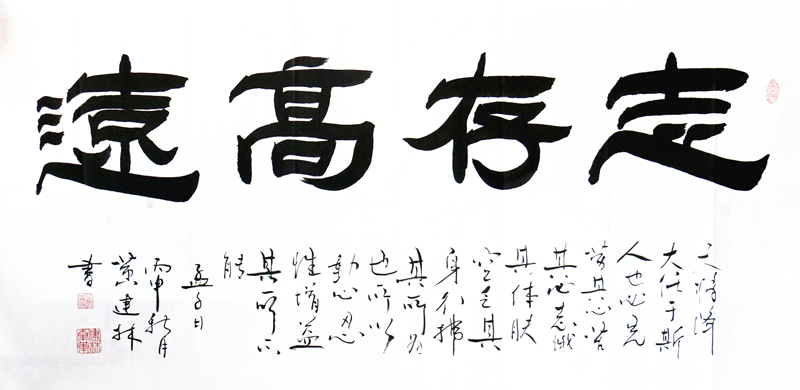 志存高遠
天将降
大任于斯
人也必先
其心
其心志饿
其体肤
空乏其
身行拂
其所为
也所以
動心忍
性增益
其所不
能
孟子曰
丙申秋月
建林
書